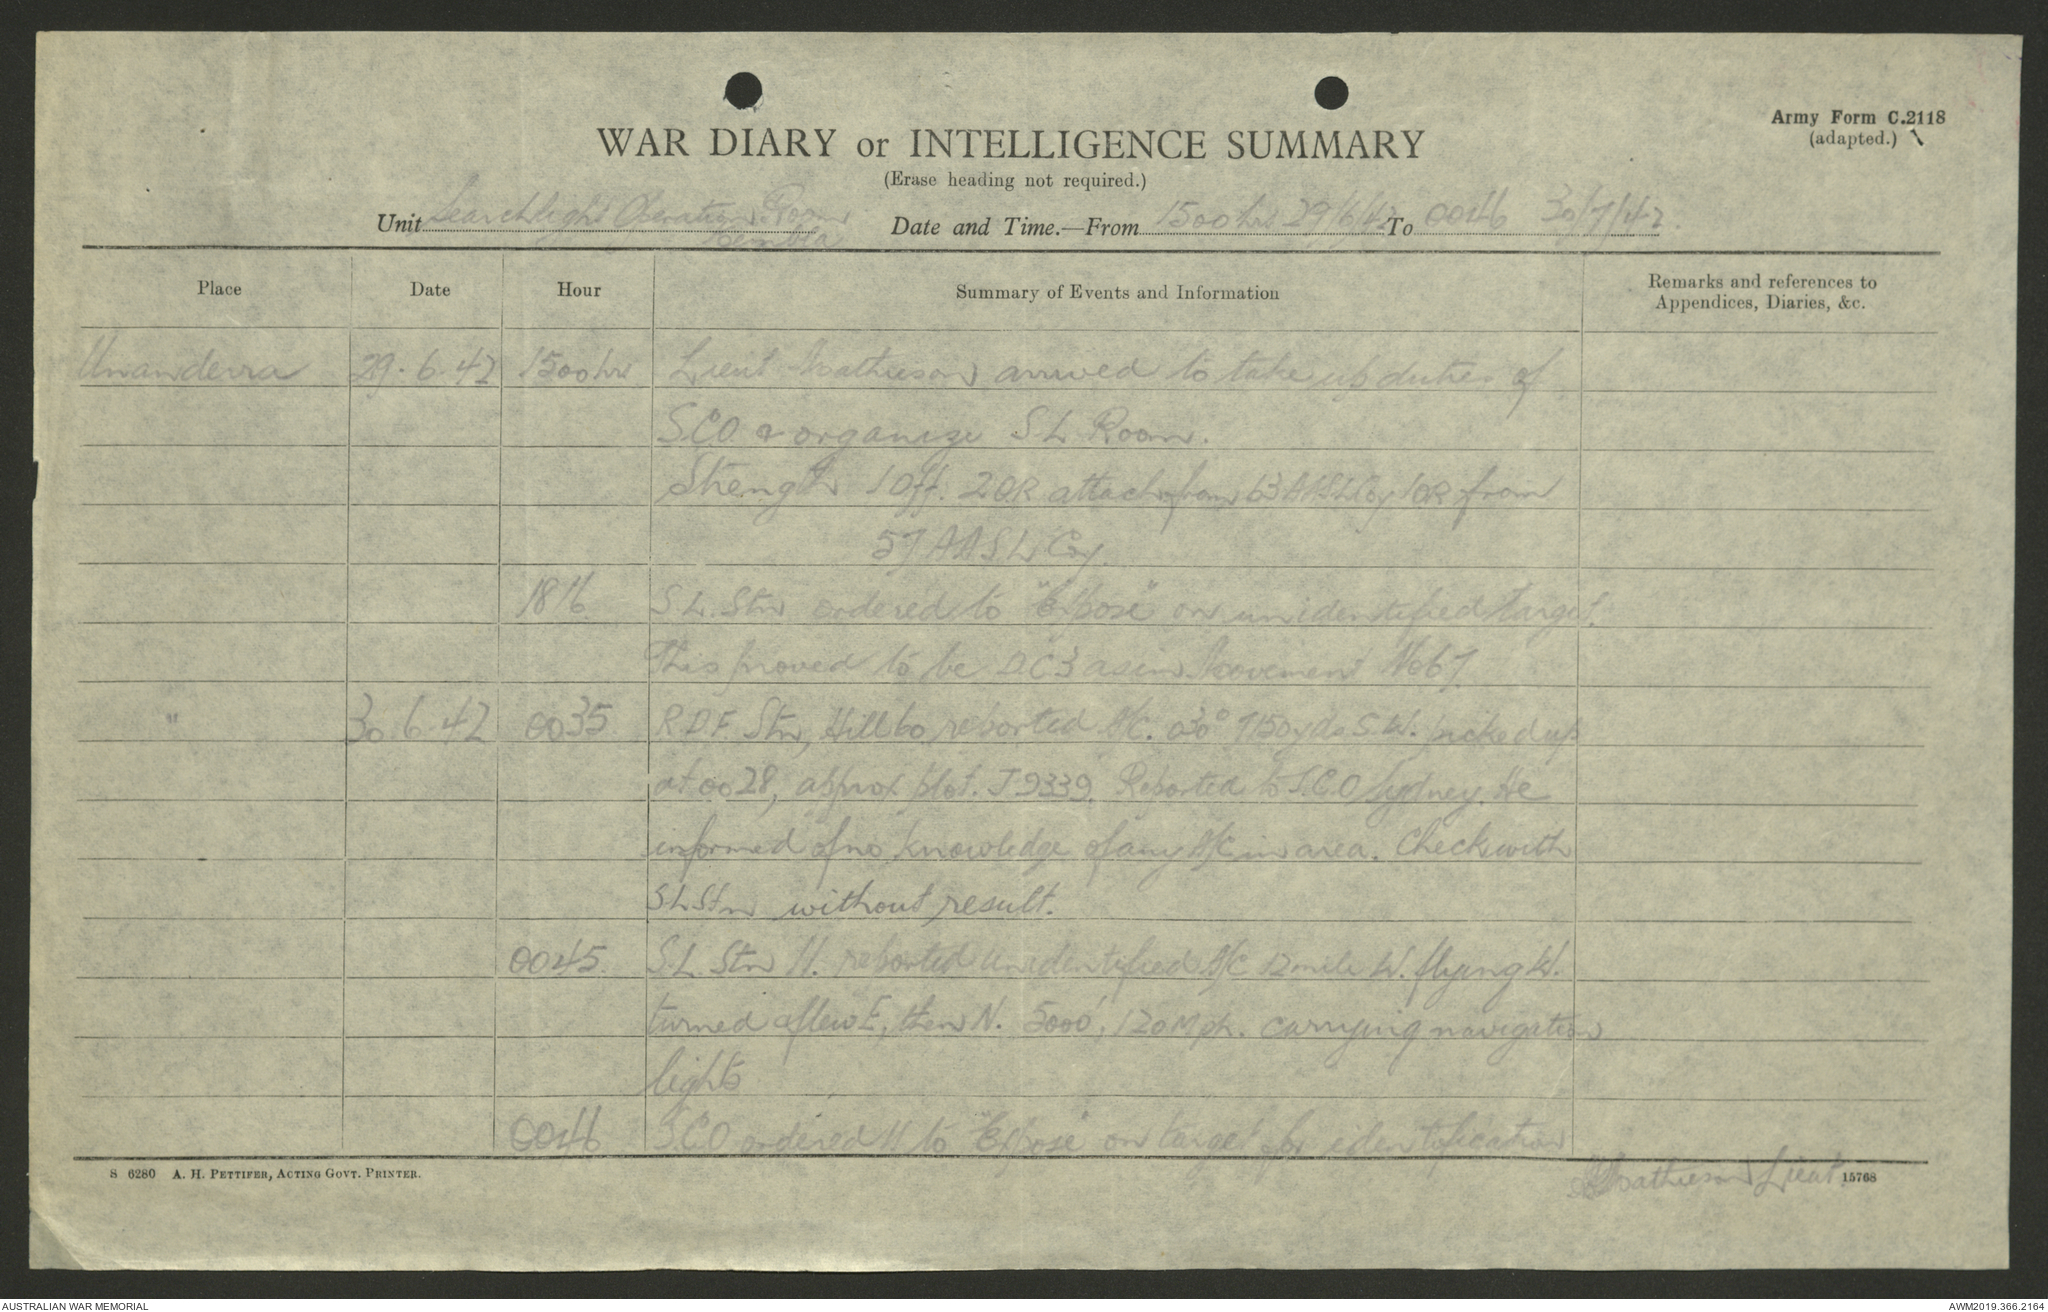 Army Form C.2118
(adapted.) 1
WAR DIARY or INTELLIGENCE SUMMARY
(Erase heading not required.)
Unit Searchlight Operation Room Kembla Date and Time.—From 1500 hrs 29/6/42 To 0046 30/7/42.
Place Date Hour Summary of Events and Information Remarks and references to Appendices, Diaries, &c.
Unanderra 29.6.42 1500 hrs Lieut Mathieson arrived to take up duties of
SCO & organize S L Room.
Strength 1 Off. 2 OR attach from 63 AASL Coy 1 OR from
57 AASL Coy.
1816 S.L. Stn ordered to "Expose" on unidentified target.
This proved to be DC3 as in Movement No 67
" 30.6.42 0035 R.D.F. Stn, Hill 60 reported A/C. 030° 7150 yds S.W. picked up
at 0028, approx plot. J 9339. Reported to S.C.O Sydney. He
informed of no knowledge of any A/C in area. Check with
S L Stn without result.
0045. S.L. Stn 11. reported unidentified A/C 12 mile W. flying W.
turned & flew E, then N. 5000', 120 Mph. carrying navigation
lights
0046 S.C.O ordered 11 to "Expose" on target for identification
Mathieson Lieut.
S 6280 A. H. PETTIFER, ACTING GOVT. PRINTER.
15768
AUSTRALIAN WAR MEMORIAL
AWM2019.366.2164